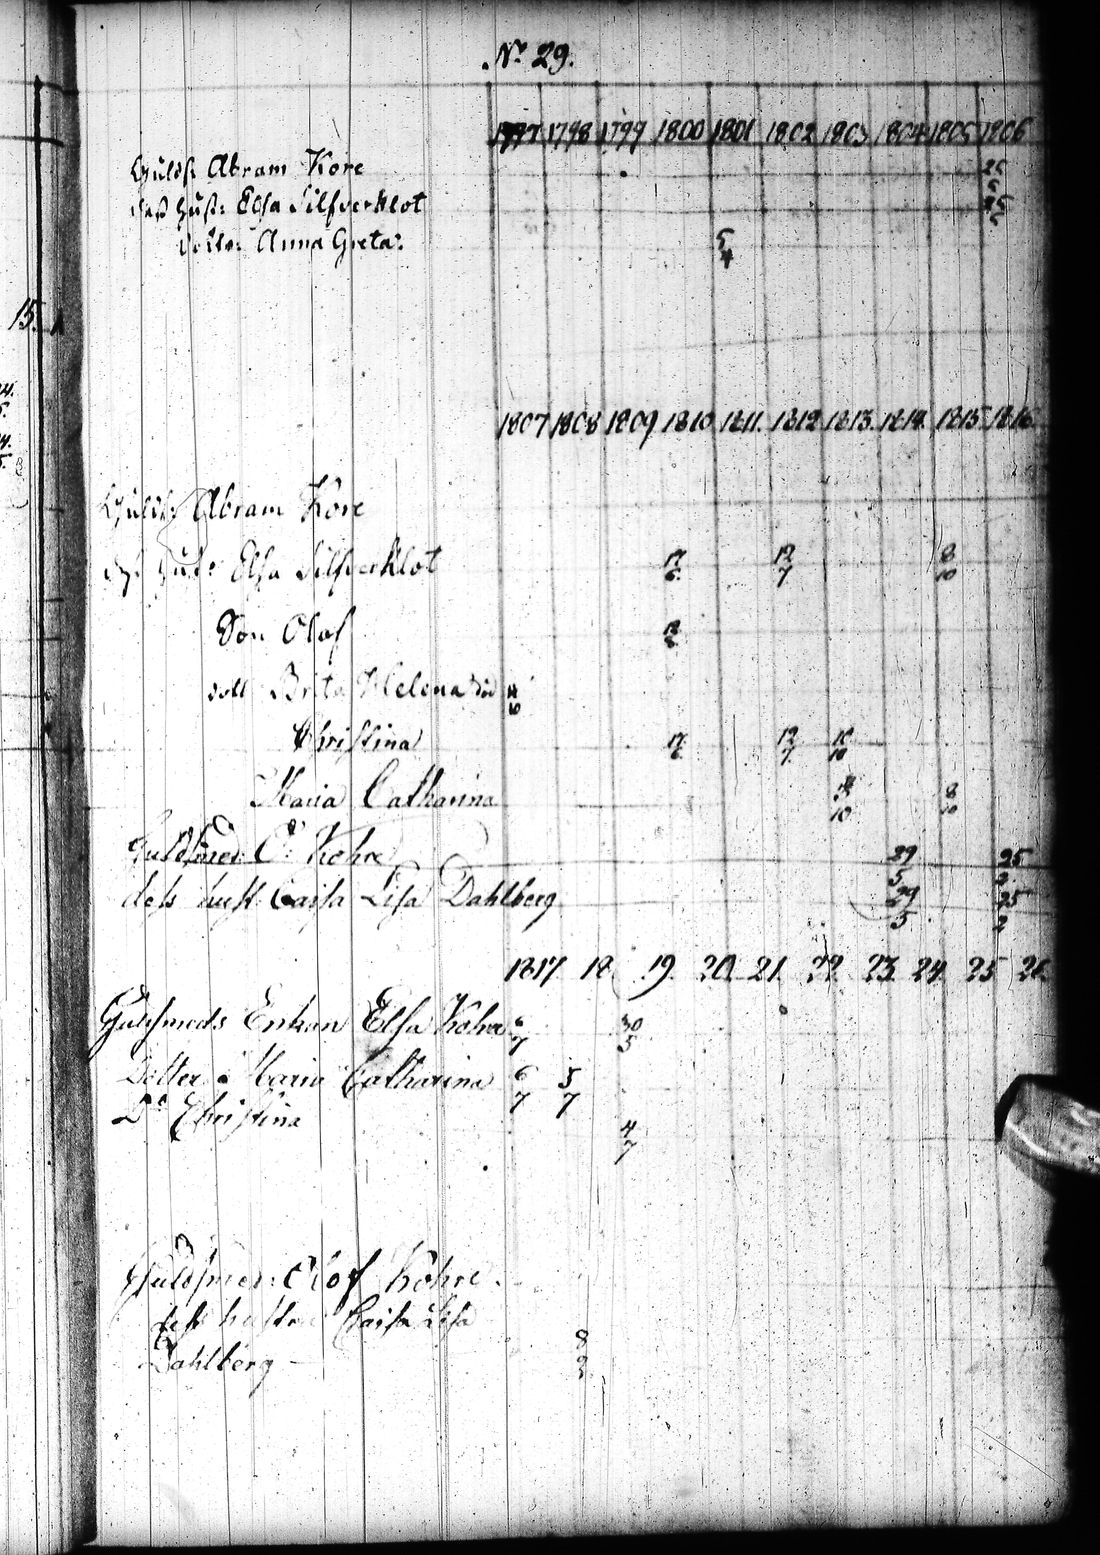 N:o 29.
1797 1798 1799 1800 1801 1802 1803 1804 1805 1806
Guldsm: Abram Köre 25
6
dess Hust: Elsa Silfverklot 25
5
Dotter: Anna Greta: 5
4
15.
1807 1808 1809 1810 1811. 1812 1813. 1814. 1815. 1816.
Guldsm: Abram Köre
dess Hust: Elsa Silfverklot 17 12 8
6. 7 10
Son Olof
dott: Brita Helena död
Christina 17 12
6. 7.
Maria Catharina 8
10 10
Guldsmed O: Kohre 29 25
5 2
dess hust. Caisa Lisa Dahlberg 29 25
5 2
1817 18 19. 20. 21. 22. 23. 24. 25 26
Guldsmeds Enkan Elsa Kohre 6 30
7 5
Dotter Maria Catharina 6 5
7 7
D:o Christina 4
7
Guldsmed: Olof Kohre.
dess hustru Caisa Lisa
Dahlberg — 8